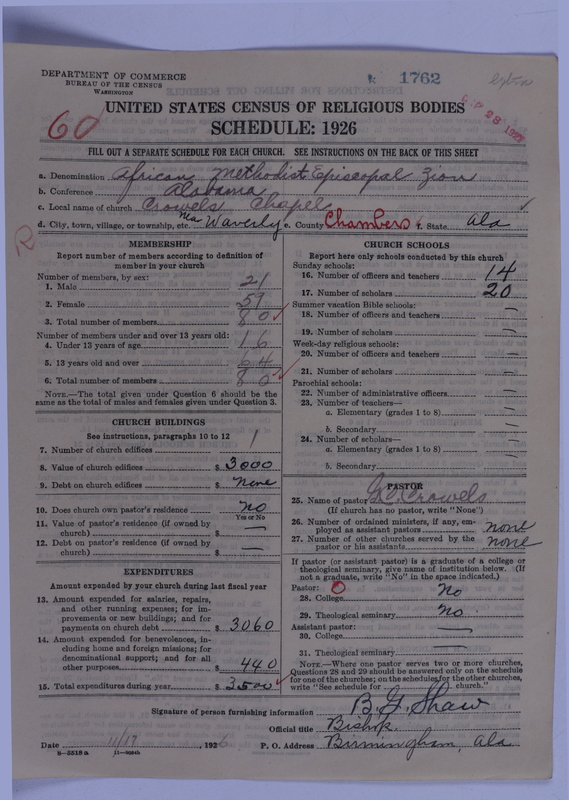 DEPARTMENT OF COMMERCE
BUREAU OF THE CENSUS
WASHINGTON
1762
60
UNITED STATES CENSUS OF RELIGIOUS BODIES
SCHEDULE: 1926
FILL OUT A SEPARATE SCHEDULE FOR EACH CHURCH. SEE INSTRUCTIONS ON THE BACK OF THIS SHEET
a. Denomination African Methodist Episcopal Zion
b. Conference Alabama
c. Local name of church Crowels Chapel
d. City, town, village, or township, etc. Waverly e. County Chambers f. State Ala
MEMBERSHIP
Report number of members according to definition of
member in your church
Number of members, by sex:
1. Male 21
2. Female 59
3. Total number of members 80
Number of members under and over 13 years old:
4. Under 13 years of age 16
5. 13 years old and over 64
6. Total number of members 80
NOTE.—The total given under Question 6 should be
same as the total of males and females given under Question 3.
CHURCH BUILDINGS
See instructions, paragraphs 10 to 12
7. Number of church edifices 1
8. Value of church edifices $ 3000
9. Debt on church edifices $ none
10. Does church own pastor's residence No
Yes or No
11. Value of pastor's residence (if owned by
church) $ —
12. Debt on pastor's residence (if owned by
church) $ —
EXPENDITURES
Amount expended by your church during last fiscal year
13. Amount expended for salaries, repairs,
and other running expenses; for im-
provements or new buildings; and for
payments on church debt $ 3060
14. Amount expended for benevolences, in-
cluding home and foreign missions; for
denominational support; and for all
other purposes $ 440
15. Total expenditures during year $ 3500
CHURCH SCHOOLS
Report here only schools conducted by this church
Sunday schools:
16. Number of officers and teachers 14
17. Number of scholars 20
Summer vacation Bible schools:
18. Number of officers and teachers —
19. Number of scholars —
Week-day religious schools:
20. Number of officers and teachers —
21. Number of scholars —
Parochial schools:
22. Number of administrative officers —
23. Number of teachers—
a. Elementary (grades 1 to 8) —
b. Secondary —
24. Number of scholars—
a. Elementary (grades 1 to 8) —
b. Secondary —
PASTOR
25. Name of pastor Crowels
(If church has no pastor, write "None")
26. Number of ordained ministers, if any, em-
ployed as assistant pastors none
27. Number of other churches served by the
pastor or his assistants none
If pastor (or assistant pastor) is a graduate of a college or
theological seminary, give name of institution below. (If
not a graduate, write "No" in the space indicated.)
Pastor:
28. College No
29. Theological seminary No
Assistant pastor:
30. College —
31. Theological seminary —
NOTE.—Where one pastor serves two or more churches,
Questions 28 and 29 should be answered only on the schedule
for one of the churches; on the schedules for the other churches,
write "See schedule for church."
Signature of person furnishing information B. G. Shaw
Official title Bishop
Date 11/17, 1926 P. O. Address Birmingham, Ala